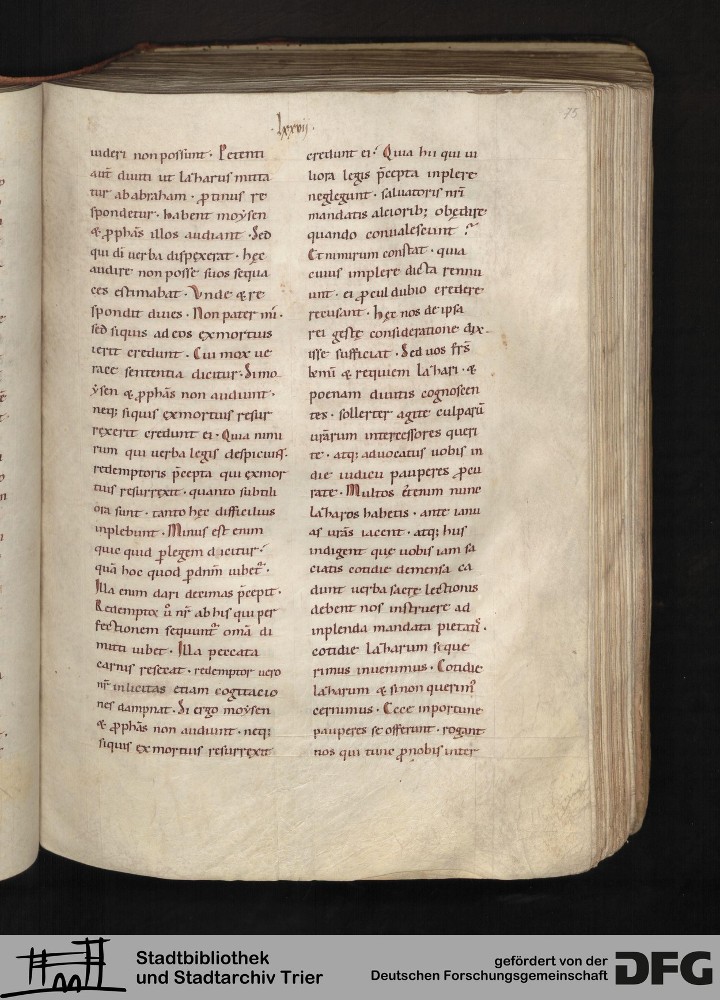 ·lxxvij·
75
uideri non possunt· Petenti
aut̄ diuiti ut lazharus mitta
tur ab abraham· p̱tinus re
spondetur· habent moẏsen
& p̱phās illos audiant· Sed
qui di uerba dispexerat· hęc
audire non posse suos sequa
ces estimabat· Vnde & re
spondit diues· Non pater mi·
sed siquis ad eos ex mortuis
ierit credent· Cui mox ue
race sententia dicitur· Si mo
ẏsen & p̱phās non audiunt·
neq; siquis ex mortuis resur
rexerit credunt ei· Quia nimi
rum qui uerba legis despiciunt·
redemptoris p̄cepta qui ex mor
tuis resurrexit· quanto subtili
ora sunt· tanto hęc difficilius
inplebunt· Minus est enim
quic quid p̱ legem dicitur·
quā hoc quod p̱ dn̄m iubet᷑·
Illa enim dari decimas p̄cepit·
Redemptor ū nr̄ ab his qui per
fectionem sequunt᷑ omā di
mitti iubet· Illa peccata
carnis resecat· redemptor uero
nr̄ inlicitas etiam cogitatio
nes dampnat· Si ergo moẏsen
& p̱phās non audiunt· neq;
siquis ex mortuis resurrexit
credunt ei? Quia hii qui ui
liora legis p̄cepta inplere
neglegunt· saluatoris nr̄i
mandatis alciorib; obedire
quando conualescunt?
Et nimirum constat· quia
cuius implere dicta rennu
unt· ei p̱cul dubio credere
recusant· Hęc nos de ipsa
rei gestę consideratione dix
isse sufficiat· Sed uos fr̄s
kīmi & requiem lazhari· &
poenam diuitis cognoscen
tes· sollerter agite culparū
ur̄arum intercessores queri
te· atq; aduocatus uobis in
die iudicii pauperes p̱cu
rate· Multos etenim nunc
lazharos habetis· ante ianu
as ur̄as iacent· atq; his
indigent que uobis iam sa
ciatis cotidie demensa ca
dunt uerba sacrę lectionis
debent nos instruere ad
inplenda mandata pietatis·
cotidie lazharum si que
rimus inuenimus· Cotidie
lazharum & si non querim᷒
cernimus· Ecce inportune
pauperes se offerunt· rogant
nos qui tunc p̱ nobis inter
Stadtbibliothek
und Stadtarchiv Trier
gefördert von der
Deutschen Forschungsgemeinschaft
DFG